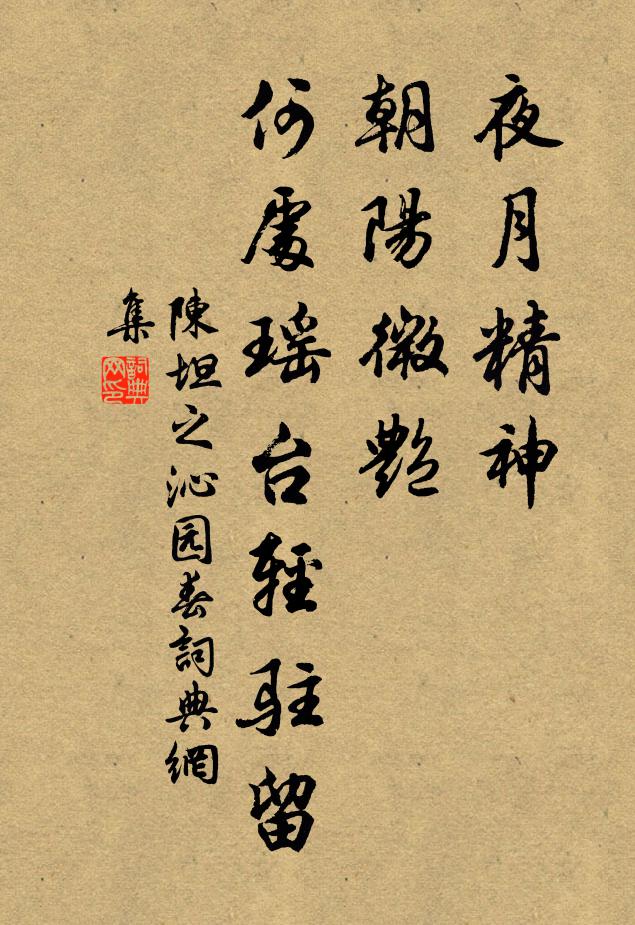 夜月精神
朝陽微艷
何處瑤台輕駐留
陳坦之沁园春詞典網
集
詞典
网印